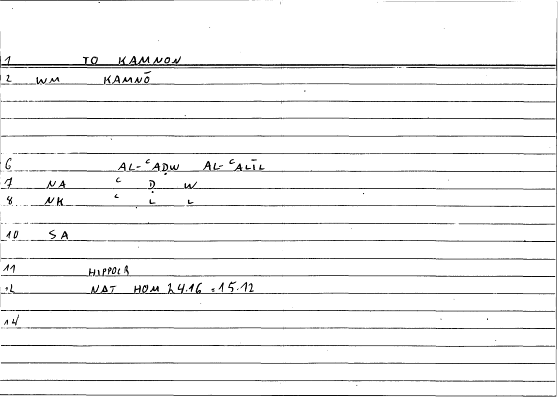 1 TO KAMNON
2 WM KAMNŌ
6 AL-ᶜAḌW AL-ᶜALĪL
7 NA ᶜ Ḍ W
8 NK ᶜ L L
10 SA
11 HIPPOCR
12 NAT HOM 24.16 = 15.12
14